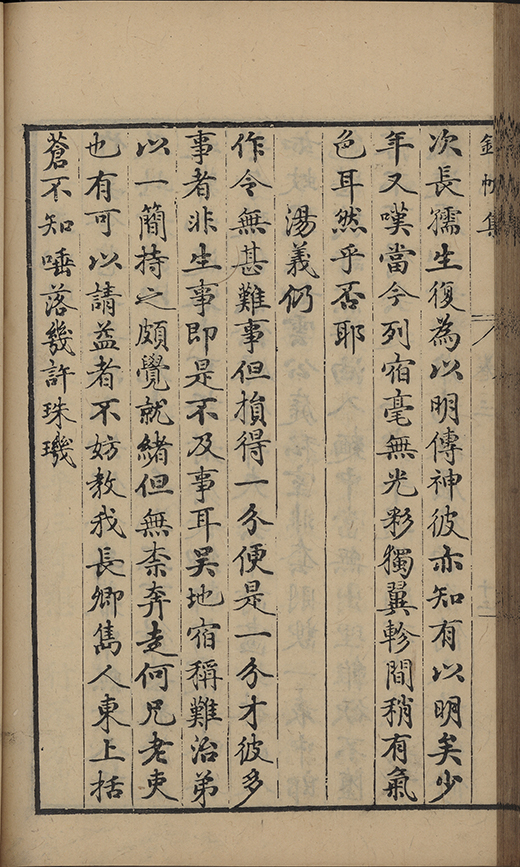 錦帆集
次長孺生復為以明傳神彼亦知有以明矣少
年又嘆當今列宿毫無光彩獨翼軫間稍有氣
色耳然乎否耶
湯義仍
作令無甚難事但損得一分便是一分才彼多
事者非生事即是不及事耳吳地宿稱難治弟
以一簡持之頗覺就緒但無柰奔走何兄老吏
也有可以請益者不妨教我長卿雋人東上括
蒼不知唾落幾許珠璣